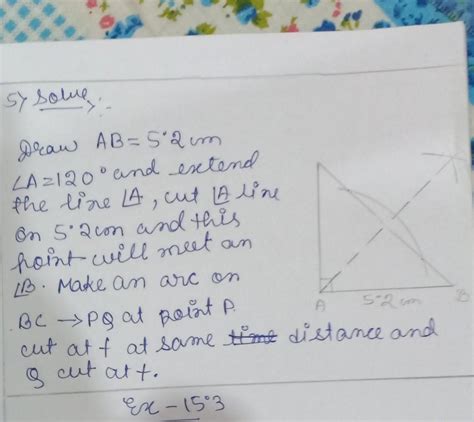 5) Solve,
Draw AB = 5.2 cm
∠A = 120° and extend
the line ∠A, cut ∠A line
on 5.2 cm and this
point will meet an
∠B. Make an arc on
BC → PQ at point P.
cut at f at same time distance and
Q cut at f.
A 5.2 cm B
Ex - 15.3